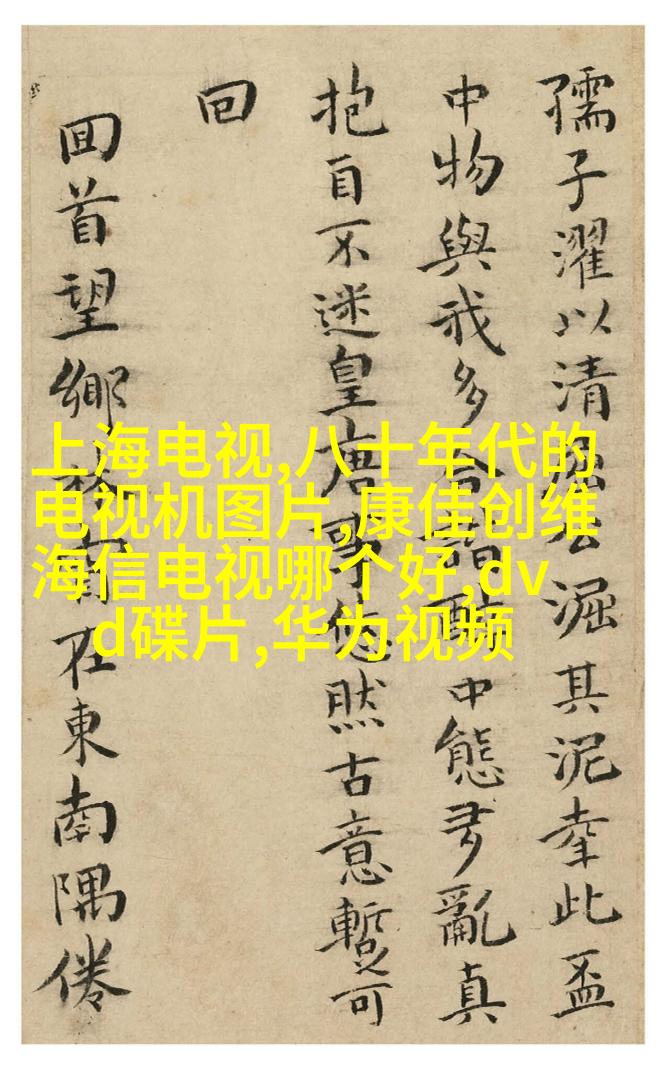 孺子濯以清淈其泥此盃
中物與我多中態多亂真
抱自不迷皇唐事悠然古意暫可
回
回首望鄉在東南隅倦
上海电视,八十年代的
电视机图片,康佳创维
海信电视哪个好,dv
d碟片,华为视频